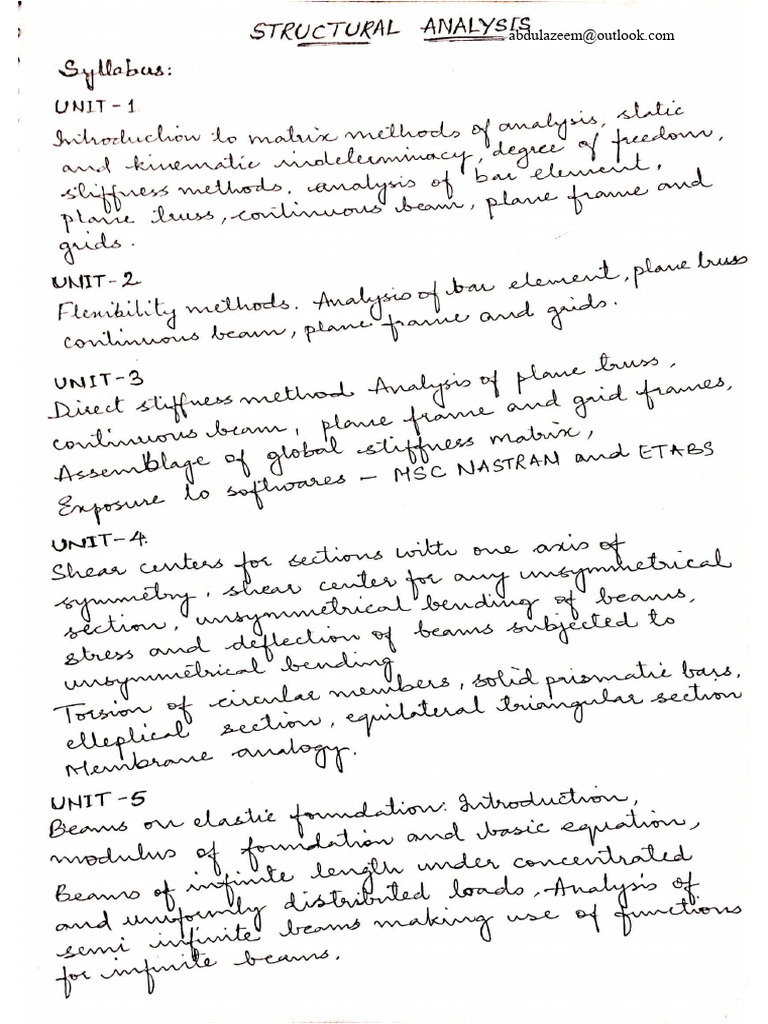 STRUCTURAL ANALYSIS
abdulazeem@outlook.com
Syllabus:
UNIT-1
Introduction to matrix methods of analysis, static
and kinematic indeterminacy, degree of freedom,
stiffness methods, analysis of bar element,
plane truss, continuous beam, plane frame and
grids.
UNIT-2
Flexibility methods. Analysis of bar element, plane truss
continuous beam, plane frame and grids.
UNIT-3
Direct stiffness method Analysis of plane truss,
continuous beam, plane frame and grid frames,
Assemblage of global stiffness matrix,
Exposure to softwares - MSC NASTRAN and ETABS
UNIT-4.
Shear centers for sections with one axis of
symmetry, shear center for any unsymmetrical
section, unsymmetrical bending of beams,
stress and deflection of beams subjected to
unsymmetrical bending
Torsion of circular members, solid prismatic bars,
elleptical section, equilateral triangular section
Membrane analogy.
UNIT-5
Beams on elastic foundation: Introduction,
modulus of foundation and basic equation,
Beams of infinite length under concentrated
and uniformly distributed loads, Analysis of
semi infinite beams making use of functions
for infinite beams.